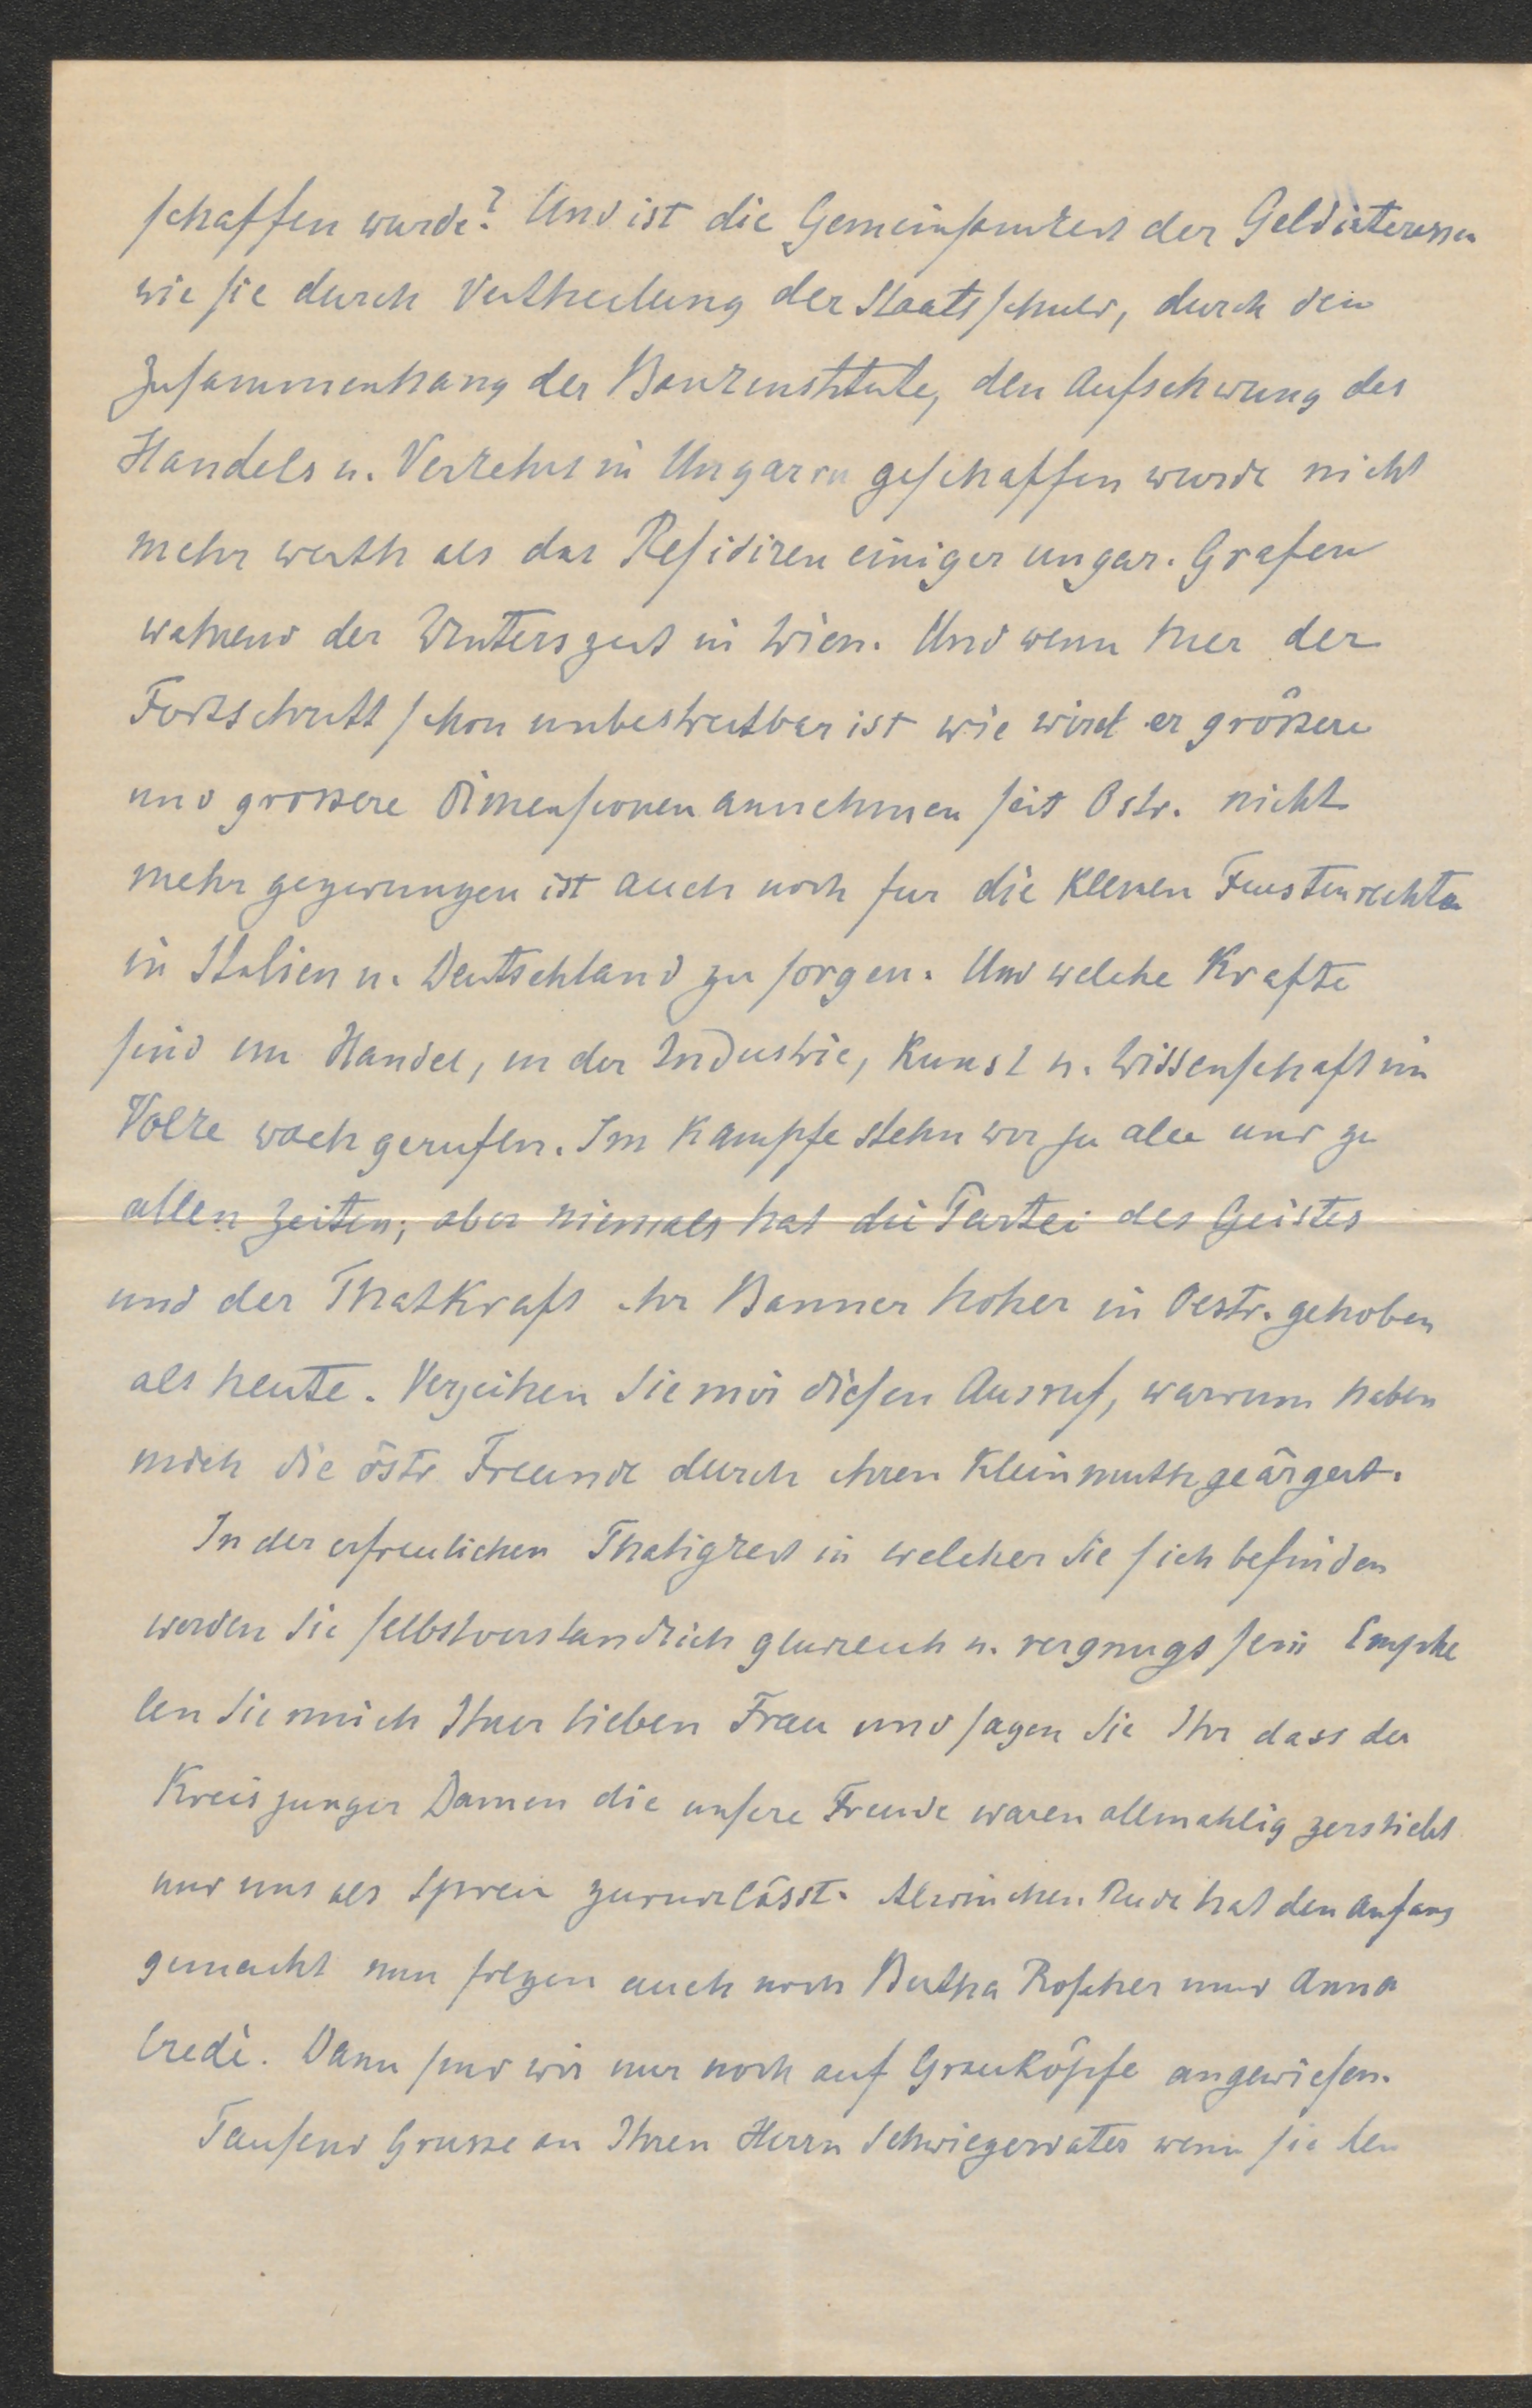 schaffen wurde? Und ist die Gemeinsamkeit der Geldinteressen
wie sie durch Vertheilung der Staatsschuld, durch den
Zusammenhang der Bankinstitute, den Aufschwung des
Handels u. Verkehrs in Ungarn geschaffen wurde nicht
mehr werth als das Residiren einiger ungar. Grafen
wahrend der Winterszeit in Wien. Und wenn hier der
Fortschritt schon unbestreitbar ist wie wird er größere
und grossere Dimensionen annehmen seit Ostr. nicht
mehr gezwungen ist auch noch fur die kleinen Furstenrechte
in Italien u. Deutschland zu sorgen. Und welche Krafte
sind im Handel, in der Industrie, Kunst u. Wissenschaft im
Volke wach gerufen. Im Kampfe stehn wir ja alle und zu
allen Zeiten; aber niemals hat die Partei des Geistes
und der Thatkraft ihr Banner hoher in Oestr. gehoben
als heute. Verzeihen Sie mir diesen Ausruf, warum haben
mich die östr Freunde durch ihren Kleinmuth geärgert.
In der erfreulichen Thatigkeit in welcher Sie sich befinden
werden Sie selbstverstandlich glucklich u. vergnugt sein Empfe
len Sie mich Ihrer lieben Frau und sagen Sie Ihr dass der
Kreis junger Damen die unsere Freude waren allmahlig zerstiebt
und uns als Spreu zurucklässt. Alwinchen Rude hat den Anfang
gemacht nun folgen auch noch Bertha Roscher und Anna
Credè. Dann sind wir nur noch auf Grauköpfe angewiesen.
Tausend Grusse an Ihren Herrn Schwiegervater wenn sie den